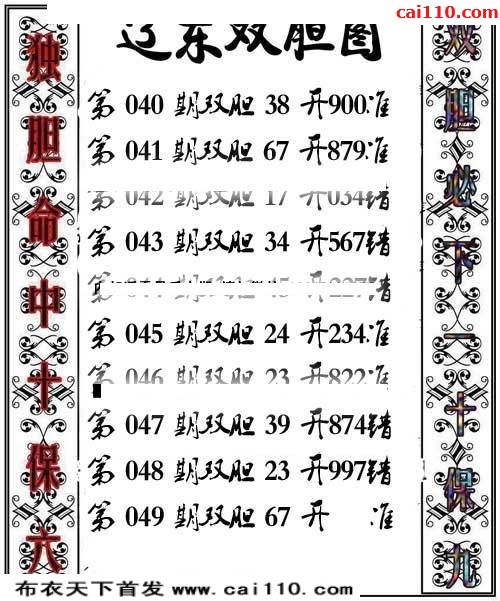 cai110.com
辽东双胆图
独胆命中十保六
第 040 期双胆 38 开900准
第 041 期双胆 67 开879准
第 042 期双胆 17 开034错
第 043 期双胆 34 开567错
期双胆 45 开227错
第 045 期双胆 24 开234准
第 046 期双胆 23 开822准
第 047 期双胆 39 开874错
第 048 期双胆 23 开997错
第 049 期双胆 67 开 准
双胆必下一十保九
布衣天下首发 www.cai110.com